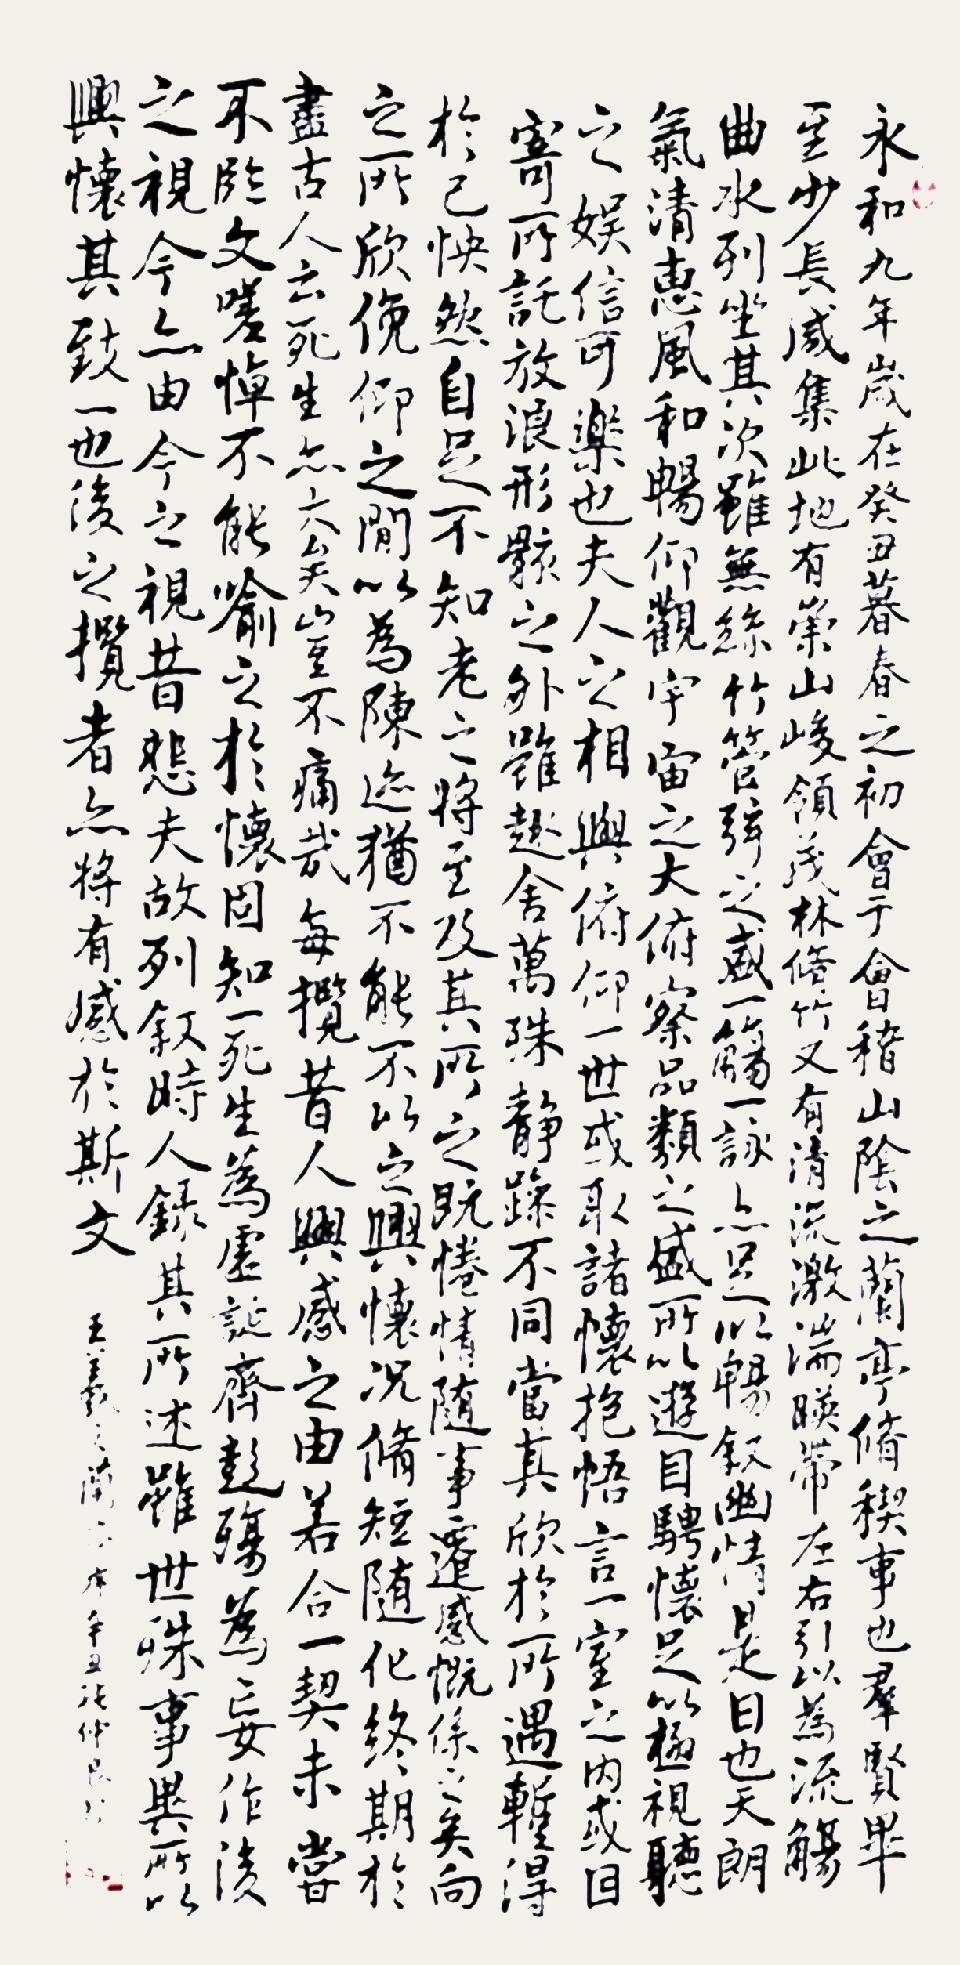 永和九年歲在癸丑暮春之初會于會稽山陰之蘭亭脩稧事也羣賢畢
至少長咸集此地有崇山峻領茂林脩竹又有清流激湍暎帶左右引以為流觴
曲水列坐其次雖無絲竹管弦之盛一觴一詠亦足以暢叙幽情是日也天朗
氣清惠風和暢仰觀宇宙之大俯察品類之盛所以遊目騁懷足以極視聽
之娛信可樂也夫人之相與俯仰一世或取諸懷抱悟言一室之內或因
寄所託放浪形骸之外雖趣舍萬殊静躁不同當其欣於所遇蹔得
於己怏然自足不知老之將至及其所之既惓情随事遷感慨係之矣向
之所欣俛仰之閒以為陳迹猶不能不以之興懷況脩短随化終期於
盡古人云死生亦大矣豈不痛哉每攬昔人興感之由若合一契未嘗
不臨文嗟悼不能喻之於懷固知一死生為虛誕齊彭殤為妄作後
之視今亦由今之視昔悲夫故列叙時人錄其所述雖世殊事異所以
興懷其致一也後之攬者亦將有感於斯文
王羲之蘭亭序辛丑張仲